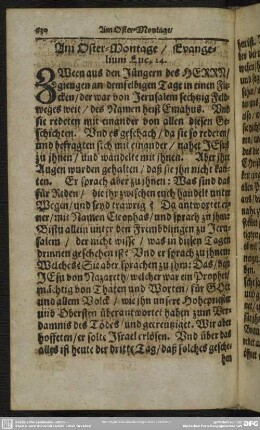 Am Oster-Montage/
Am Oster-Montage / Evange-
lium Luc. 24.
ZWeen aus den Jüngern des HERRN/
giengen an demselbigen Tage in einen Fle-
cken/ der war von Jerusalem sechzig Feld
weges weit / des Namen heist Emahus. Und
sie redeten mit einander von allen diesen Ge-
schichten. Und es geschach / da sie so redeten/
und befragten sich mit einander / nahet JEsus
zu ihnen / und wandelte mit ihnen. Aber ihre
Augen wurden gehalten / daß sie ihn nicht kan-
ten. Er sprach aber zu ihnen: Was sind das
für Reden / die ihr zwischen euch handelt unter
Wegen / und seyd trawrig? Da antwortet ei-
ner / mit Namen Cleophas / und sprach zu ihm:
Bistu allein unter den Frembdlingen zu Jeru-
salem / der nicht wisse / was in diesen Tagen
drinnen geschehen ist? Und er sprach zu ihnen:
Welches? Sie aber sprachen zu ihm: Das / von
JEsu von Nazareth / welcher war ein Prophet
mächtig von Thaten und Worten / für GOtt
und allem Volck / wie ihn unsere Hohepriester
und Obersten überantwortet haben zum Ver-
damnis des Todes / und gecreutziget. Wir aber
hoffeten / er solte Israel erlösen. Und über das
alles ist heute der dritte Tag / daß solches gesche-
hen